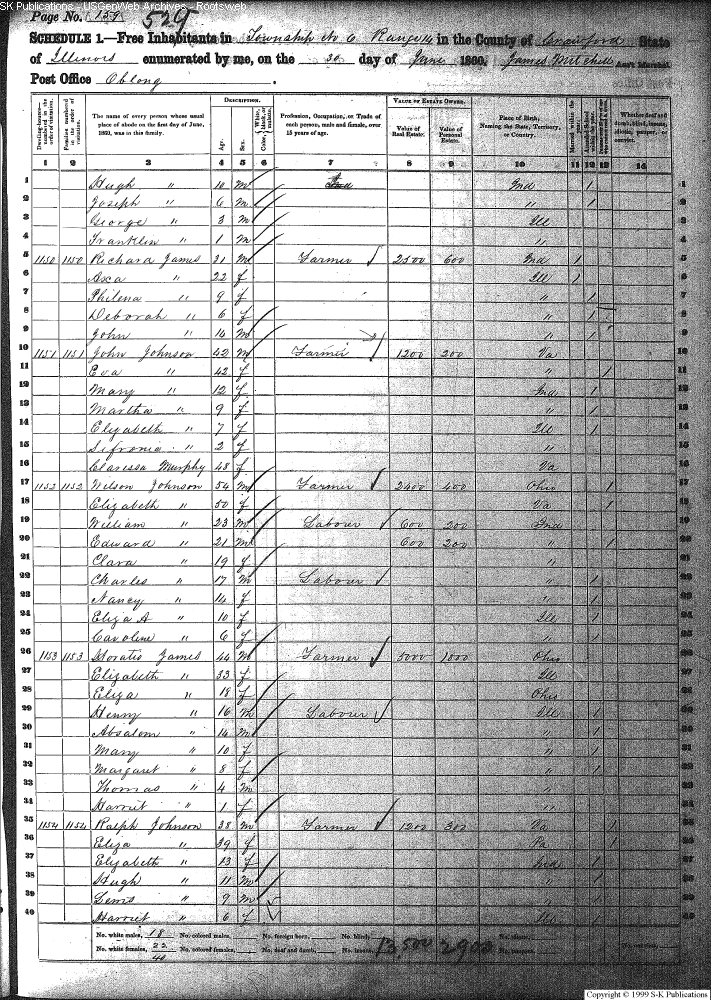 SK Publications - USGenWeb Archives - Rootsweb
Page No. 157
529
SCHEDULE 1.—Free Inhabitants in Township No 6 Range 14 in the County of Crawford State
of Illinois enumerated by me, on the 30 day of June 1860. James Mitchell Ass't Marshal.
Post Office Oblong.
Dwelling-houses—numbered in the order of visitation.
Families numbered in the order of visitation.
The name of every person whose usual place of abode on the first day of June, 1860, was in this family.
DESCRIPTION.
Age.
Sex.
Color, White, black, or mulatto.
Profession, Occupation, or Trade of each person, male and female, over 15 years of age.
VALUE OF ESTATE OWNED.
Value of Real Estate.
Value of Personal Estate.
Place of Birth, Naming the State, Territory, or Country.
Whether deaf and dumb, blind, insane, idiotic, pauper, or convict.
1 2 3 4 5 6 7 8 9 10 11 12 13 14
1 Hugh " 10 m Ind / 1
2 Joseph " 6 m " / 2
3 George " 3 m Ill 3
4 Franklin " 1 m " 4
5 1150 1150 Richard James 31 m Farmer 2500 600 Ind / 5
6 Axa " 22 f Ill / 6
7 Philena " 9 f " / 7
8 Deborah " 6 f " / 8
9 John " 14 m " / 9
10 1151 1151 John Johnson 42 m Farmer 1200 200 Va 10
11 Eva " 42 f " / 11
12 Mary " 12 f Ind / 12
13 Martha " 9 f " / 13
14 Elizabeth " 7 f Ill / 14
15 Sifronia " 2 f " 15
16 Claressa Murphy 48 f Va 16
17 1152 1152 Wilson Johnson 54 m Farmer 2400 400 Ohio / 17
18 Elizabeth " 50 f Va / 18
19 William " 23 m Labour 600 200 Ind 19
20 Edward " 21 m 600 200 " / 20
21 Clara " 19 f " 21
22 Charles " 17 m Labour " / 22
23 Nancy " 14 f " / 23
24 Eliza A " 10 f Ill / 24
25 Caroline " 6 f " / 25
26 1153 1153 Horatio James 44 m Farmer 5000 1000 Ohio 26
27 Elizabeth " 33 f Ill 27
28 Eliza " 18 f Ohio 28
29 Henry " 16 m Labour Ill / 29
30 Absalom " 14 m " / 30
31 Mary " 10 f " / 31
32 Margaret " 8 f " / 32
33 Thomas " 4 m " 33
34 Harriet " 1 f " 34
35 1154 1154 Ralph Johnson 38 m Farmer 1200 300 Va / 35
36 Eliza " 39 f Pa / 36
37 Elizabeth " 13 f Ind / 37
38 Hugh " 11 m " / 38
39 Lewis " 9 m " / 39
40 Harriet " 6 f Ill / 40
No. white males, 18 No. colored males, No. foreign born, No. blind,
No. white females, 22 No. colored females, No. deaf and dumb, No. insane, 13,500 2900
40
Copyright © 1999 S-K Publications